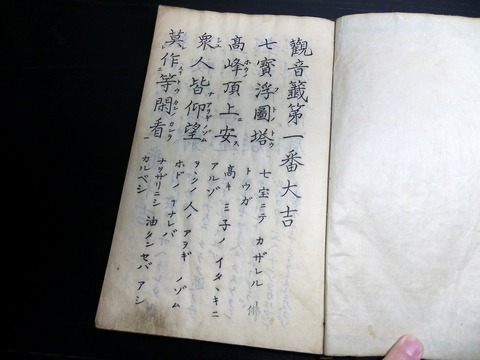 觀音籤第一番大吉
七寶浮圖塔
高峰頂上安
衆人皆仰望
莫作等閑看
七宝ニテ カザレル 佛
トウガ
高キ ミ子ノ イタヽキニ
アルゾ
人ノ アヲギ ノゾム
ホドノ
ナヲザリニシ 油タンセバ アシ
カルベシ